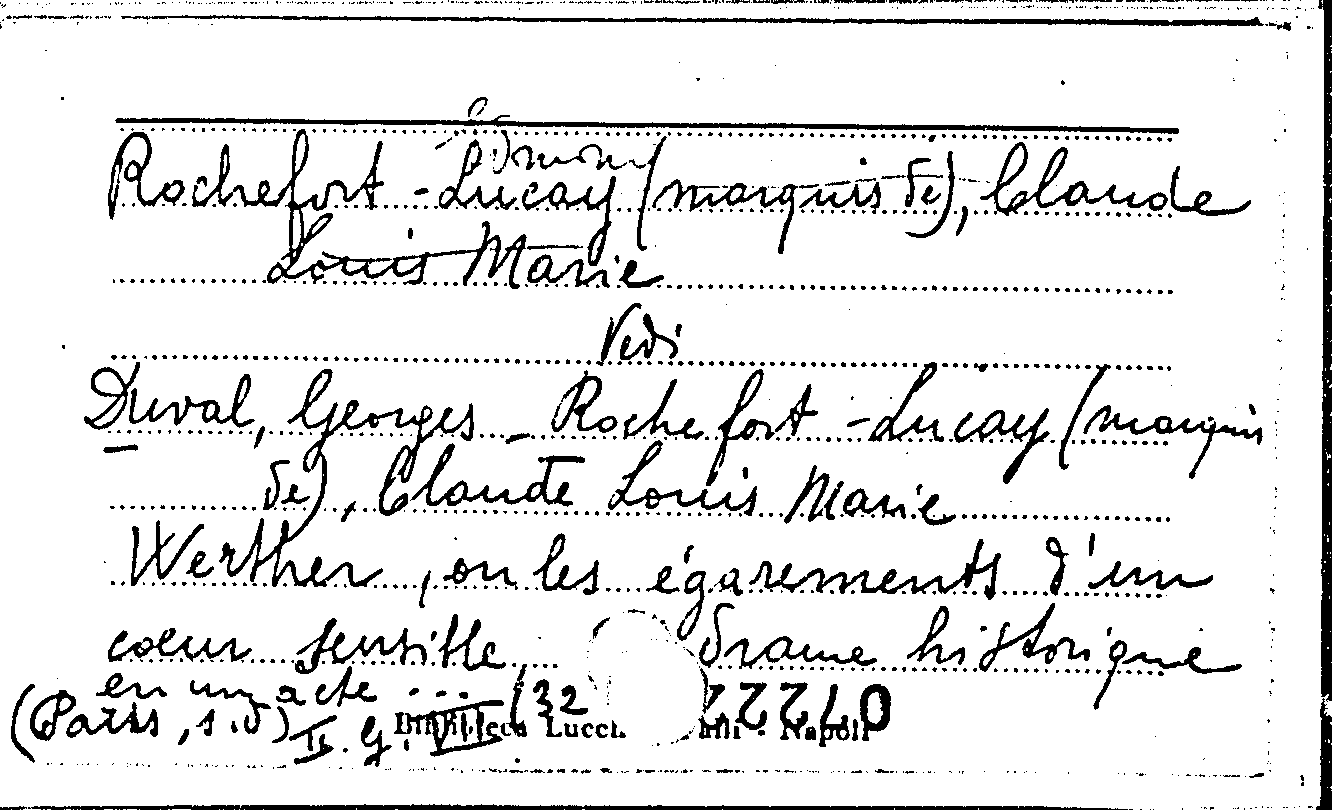 Edmond
Rochefort-Lucay (marquis de), Claude
Louis Marie
Vedi
Duval, Georges - Rochefort-Lucay (marquis
de), Claude Louis Marie
Werther, ou les égarements d'un
cœur sensible, drame historique
en un acte ...
(Paris, s.d) II. G. VIII (32
Biblioteca Lucchesi Palli - Napoli